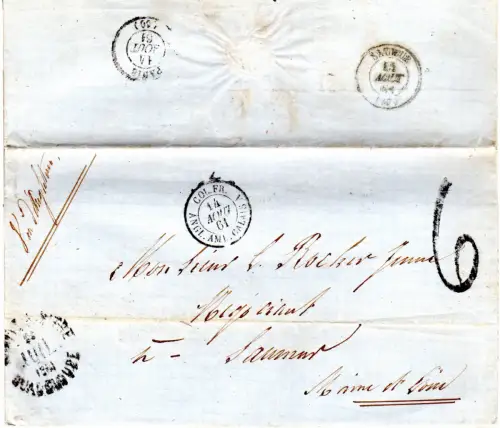 PARIS
14
AOUT
61
(60)
SAUMUR
14
AOUT
61
COL. FR. V. ANGL. AMB. CALAIS A
14
AOUT
61
6
Monsieur L. Rocher Jeune
Négociant
à Saumur
Maine et Loire
JUIL
1861